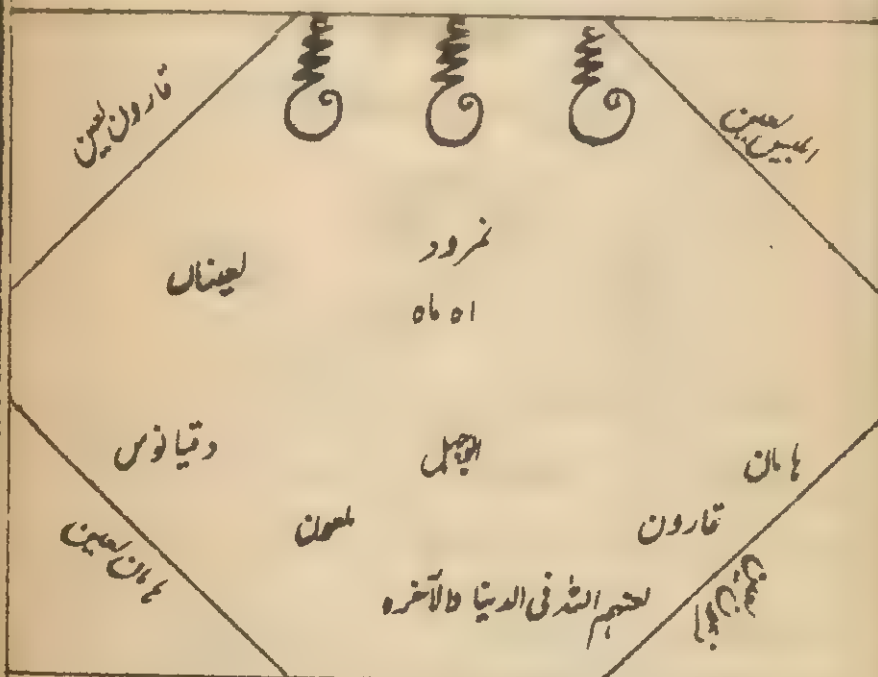 قارون لعین
ابلیس لعین
نمرود
لعیناں
اہ ماہ
دقیانوس
ابوجہل
ہامان
ملعون
قارون
ہامان لعین
لعین
لعنہم اللہ فی الدنیا والآخرہ